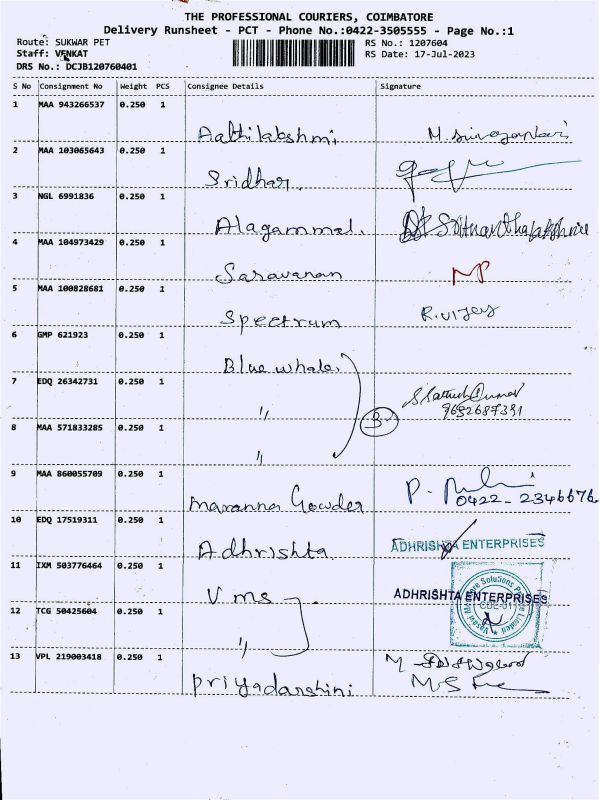 THE PROFESSIONAL COURIERS, COIMBATORE
Delivery Runsheet - PCT - Phone No.:0422-3505555 - Page No.:1
Route: SUKWAR PET
RS No.: 1207604
Staff: VENKAT
RS Date: 17-Jul-2023
DRS No.: DCJB120760401
S No Consignment No Weight PCS Consignee Details Signature
1 MAA 943266537 0.250 1
Aathilakshmi
2 MAA 103065643 0.250 1
Sridhar.
3 NGL 6991836 0.250 1
Alagammal.
4 MAA 104973429 0.250 1
Saravanan
5 MAA 100828681 0.250 1
Spectrum R.vijay
6 GMP 621923 0.250 1
Blue whale
7 EDQ 26342731 0.250 1
" 9692687391
3
8 MAA 571833285 0.250 1
"
9 MAA 860055709 0.250 1
maranna Gowder 0422-2346676
10 EDQ 17519311 0.250 1
Adhrishta ADHRISHTA ENTERPRISES
11 IXM 503776464 0.250 1
Vms ADHRISHTA ENTERPRISES
12 TCG 50425604 0.250 1
"
13 VPL 219003418 0.250 1
Priyadarshini